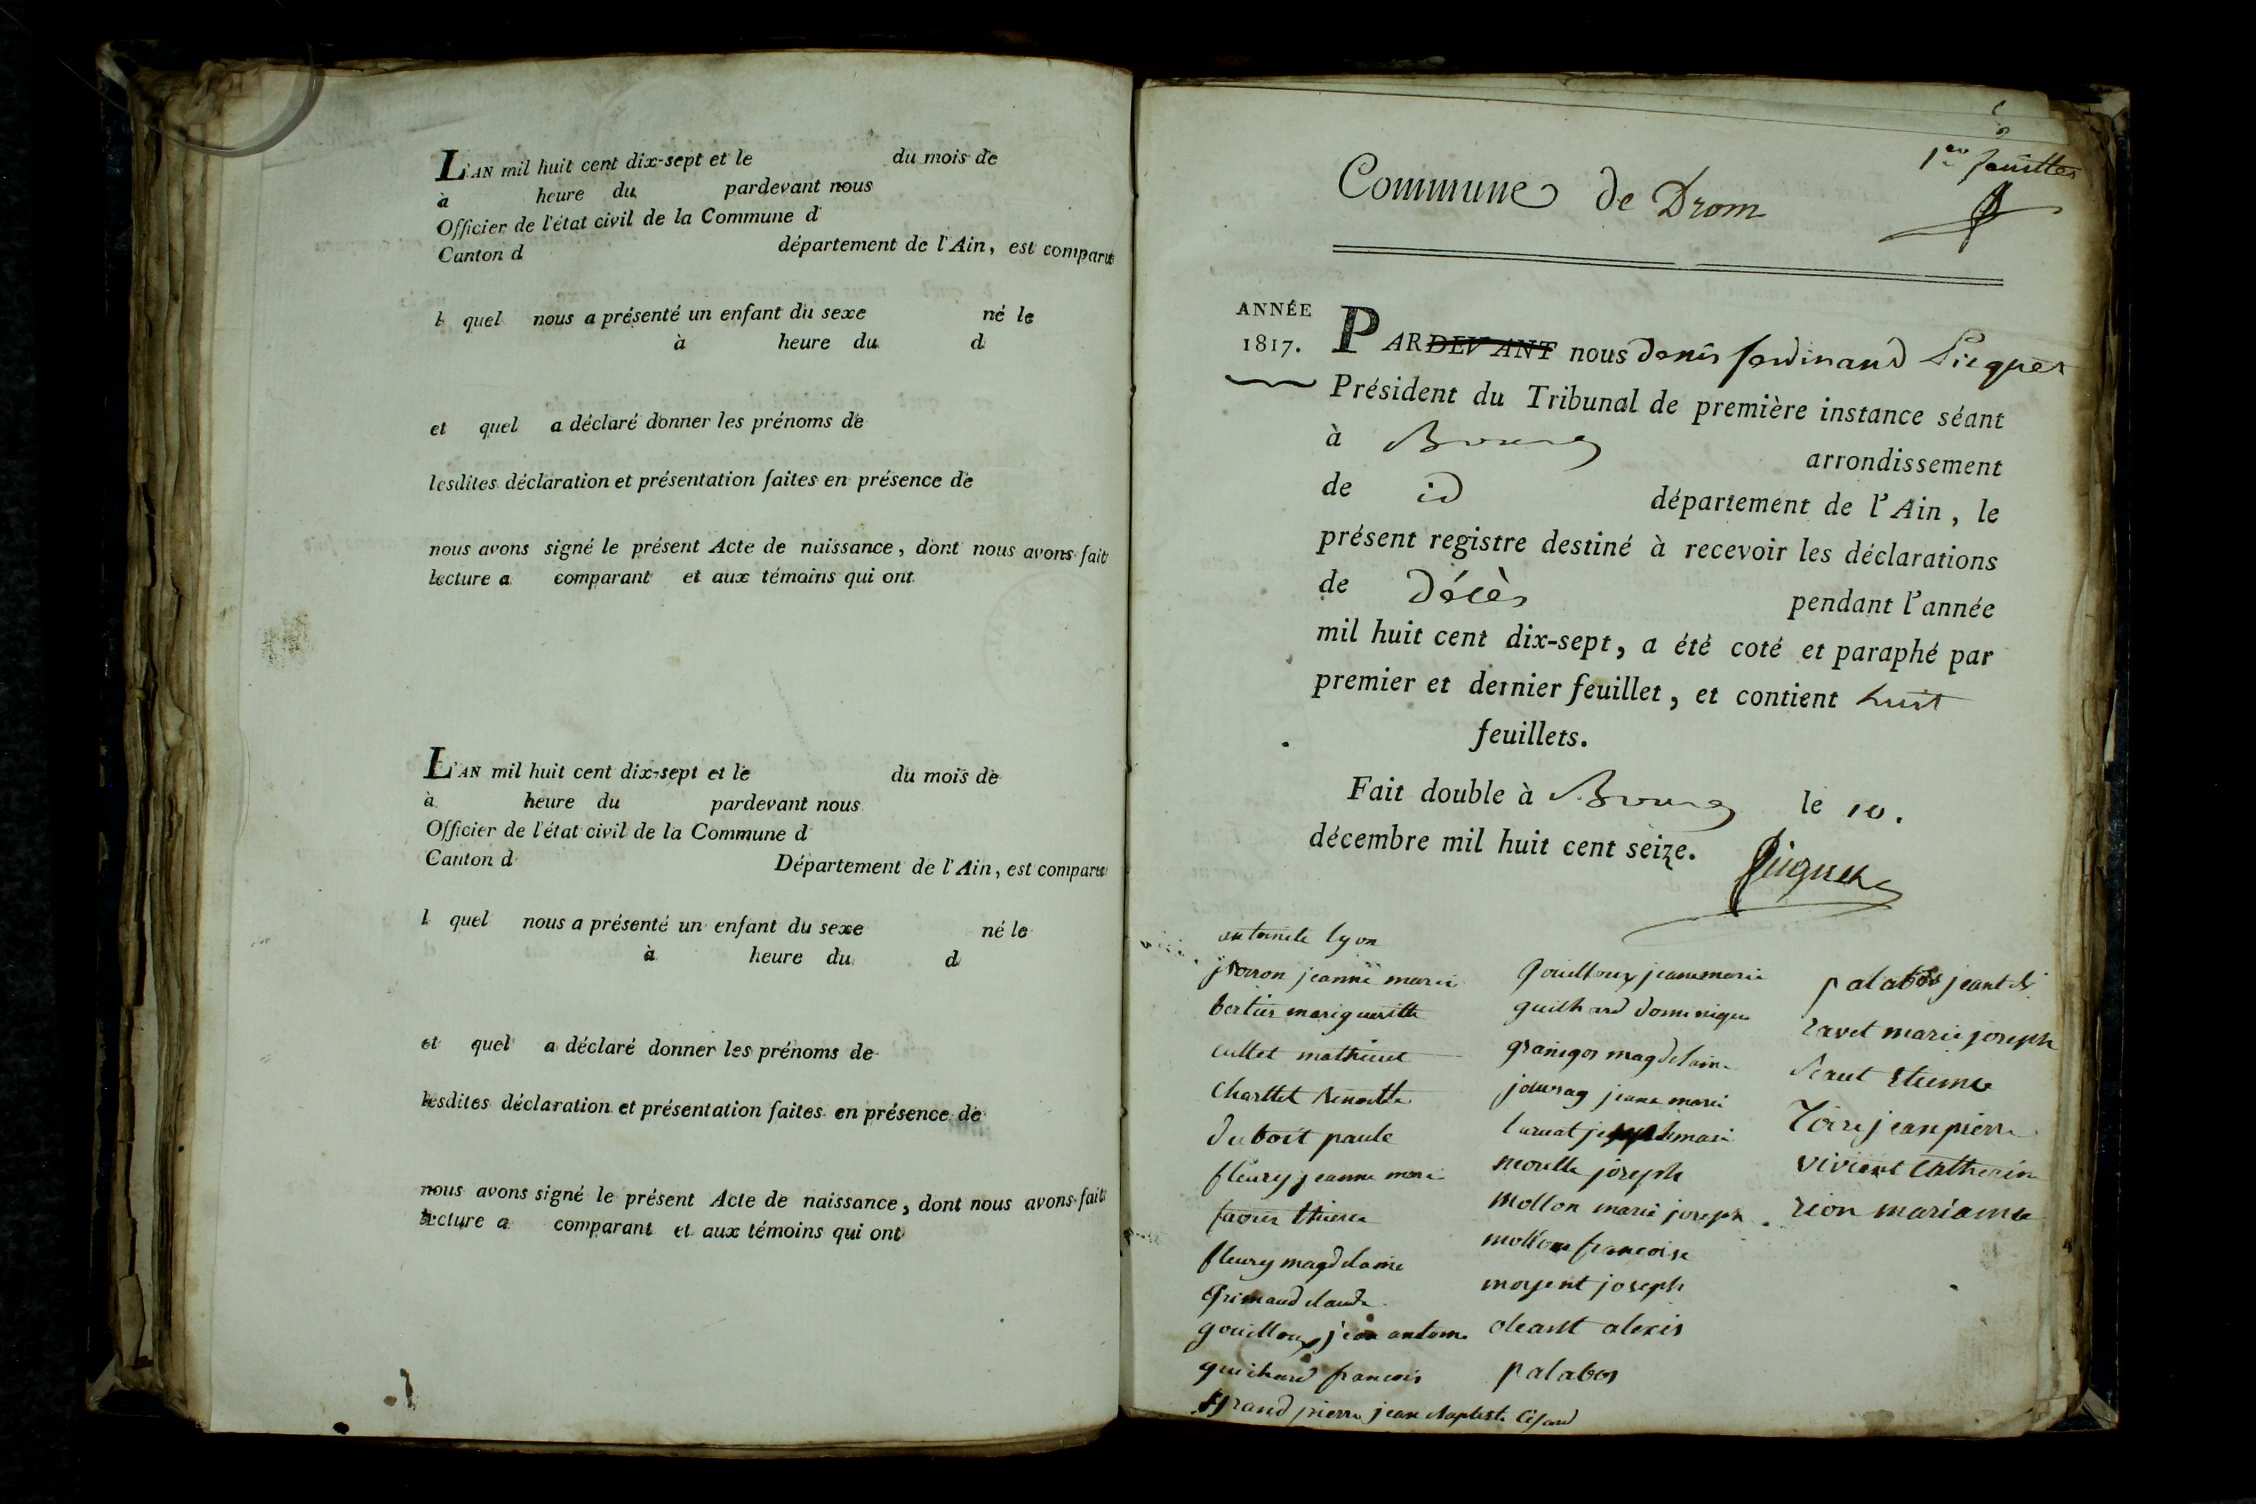 L'AN mil huit cent dix-sept et le du mois de
à heure du pardevant nous
Officier de l'état civil de la Commune d
Canton d département de l'Ain, est comparu
l quel nous a présenté un enfant du sexe né le
à heure du d
et quel a déclaré donner les prénoms de
lesdites déclaration et présentation faites en présence de
nous avons signé le présent Acte de naissance, dont nous avons fait
lecture a comparant et aux témoins qui ont
L'AN mil huit cent dix-sept et le du mois de
à heure du pardevant nous
Officier de l'état civil de la Commune d
Canton d Département de l'Ain, est comparu
l quel nous a présenté un enfant du sexe né le
à heure du d
et quel a déclaré donner les prénoms de
lesdites déclaration et présentation faites en présence de
nous avons signé le présent Acte de naissance, dont nous avons fait
lecture a comparant et aux témoins qui ont
1er feuillet
Commune de Drom
ANNÉE
1817.
PARDEVANT nous denis ferdinand Picquet
Président du Tribunal de première instance séant
à Bourg arrondissement
de id département de l'Ain, le
présent registre destiné à recevoir les déclarations
de décès pendant l'année
mil huit cent dix-sept, a été coté et paraphé par
premier et dernier feuillet, et contient huit
feuillets.
Fait double à Bourg le 10.
décembre mil huit cent seize.
Picquet
lyon
jeanne marie
bertier margueritte
cullet mathieu
Charttet Benoitte
duboit paule
fleury jeanne marie
favier
fleury magdelaine
Grimaud claude
gouilloux jean antoine
guichard francois
grand pierre jean baptiste
gouilloux jeanemarie
guilhard dominique
magdelaine
jeane marie
morelle joseph
Mollon marie joseph
mollon francoise
moyent joseph
oleant alexis
palabos
palabos
ravet marie joseph
etienne
Toire jean pierre
vivient Catherine
rion mariame